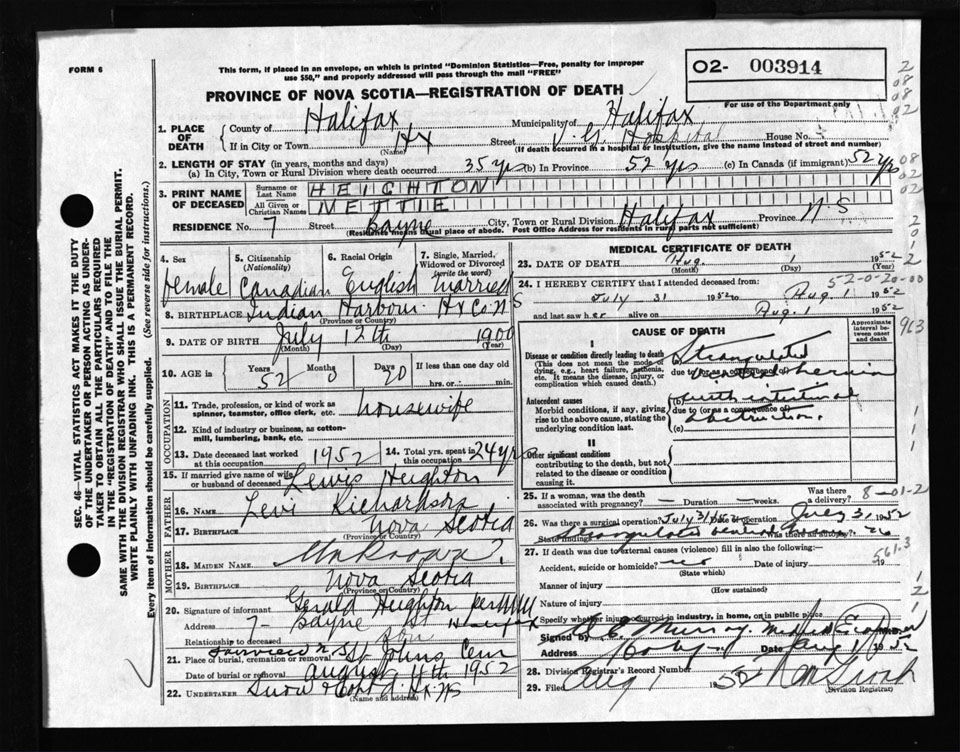 FORM 6
This form, if placed in an envelope, on which is printed "Dominion Statistics—Free, penalty for improper
use $50," and properly addressed will pass through the mail "FREE"
O2- 003914
For use of the Department only
PROVINCE OF NOVA SCOTIA—REGISTRATION OF DEATH
SEC. 46—VITAL STATISTICS ACT MAKES IT THE DUTY
OF THE UNDERTAKER OR PERSON ACTING AS UNDER-
TAKER TO OBTAIN ALL THE PARTICULARS REQUIRED
IN THE "REGISTRATION OF DEATH" AND TO FILE THE
SAME WITH THE DIVISION REGISTRAR WHO SHALL ISSUE THE BURIAL PERMIT.
WRITE PLAINLY WITH UNFADING INK. THIS IS A PERMANENT RECORD.
Every item of information should be carefully supplied. (See reverse side for instructions.)
1. PLACE OF DEATH
County of Halifax Municipality of Halifax
If in City or Town Hx (Name) Street V.G. Hospital House No.
(If death occurred in a hospital or institution, give the name instead of street and number)
2. LENGTH OF STAY (in years, months and days)
(a) In City, Town or Rural Division where death occurred 35 yrs (b) In Province 52 yrs (c) In Canada (if immigrant) 52 yrs
3. PRINT NAME OF DECEASED
Surname or Last Name HEIGHTON
All Given or Christian Names NETTIE
RESIDENCE No. 7 Street Bayne City, Town or Rural Division Halifax Province N.S
(Residence means usual place of abode. Post Office Address for residents in rural parts not sufficient)
4. Sex Female
5. Citizenship (Nationality) Canadian
6. Racial Origin English
7. Single, Married, Widowed or Divorced (write the word) Married
8. BIRTHPLACE Indian Harbour Hx Co N S
(Province or Country)
9. DATE OF BIRTH July 12th 1900
(Month) (Day) (Year)
10. AGE is Years 52 Months 0 Days 20 If less than one day
hrs. or min.
OCCUPATION
11. Trade, profession, or kind of work as
spinner, teamster, office clerk, etc. Housewife
12. Kind of industry or business, as cotton-
mill, lumbering, bank, etc.
13. Date deceased last worked
at this occupation 1952
14. Total yrs. spent in
this occupation 24 yrs
15. If married give name of wife
or husband of deceased Lewis Heighton
FATHER
16. Name Levi Richardson
17. Birthplace Nova Scotia
(Province or Country)
MOTHER
18. MAIDEN NAME Unknown ?
19. BIRTHPLACE Nova Scotia
(Province or Country)
20. Signature of informant Gerald Heighton per
Address 7- Bayne St Halifax
Relationship to deceased Son
21. Place of burial, cremation or removal Fairview N.S. St Johns Cem
Date of burial or removal August 4th 1952
22. UNDERTAKER Snow & Co Ltd Hx NS
(Name and address)
MEDICAL CERTIFICATE OF DEATH
23. DATE OF DEATH Aug. 1 1952
(Month) (Day) (Year)
24. I HEREBY CERTIFY that I attended deceased from:
52-0-20-00
July 31 1952 to Aug. 1 1952
and last saw her alive on Aug. 1 1952
CAUSE OF DEATH
Approximate interval between onset and death
I
Disease or condition directly leading to death
(This does not mean the mode of dying, e.g., heart failure, asthenia, etc. It means the disease, injury, or complication which caused death.)
(a) Strangulated
due to (or as a consequence of) hernia
Antecedent causes
Morbid conditions, if any, giving rise to the above cause, stating the underlying condition last.
(b) with intestinal
due to (or as a consequence of) obstruction.
(c)
II
Other significant conditions
contributing to the death, but not related to the disease or condition causing it.
25. If a woman, was the death
associated with pregnancy? — Duration — weeks. Was there a delivery?
8-01-2
26. Was there a surgical operation? July 31/52 Date of operation July 31, 1952
State findings Strangulated Was there an autopsy? no
27. If death was due to external causes (violence) fill in also the following:—
561.3
Accident, suicide or homicide? no Date of injury 19
(State which)
Manner of injury
(How sustained)
Nature of injury
Specify whether injury occurred in industry, in home, or in public place
Signed by Murray Medical Examiner
Address Date Aug 1 1952
28. Division Registrar's Record Number
29. Filed Aug 1 1952
(Division Registrar)
963